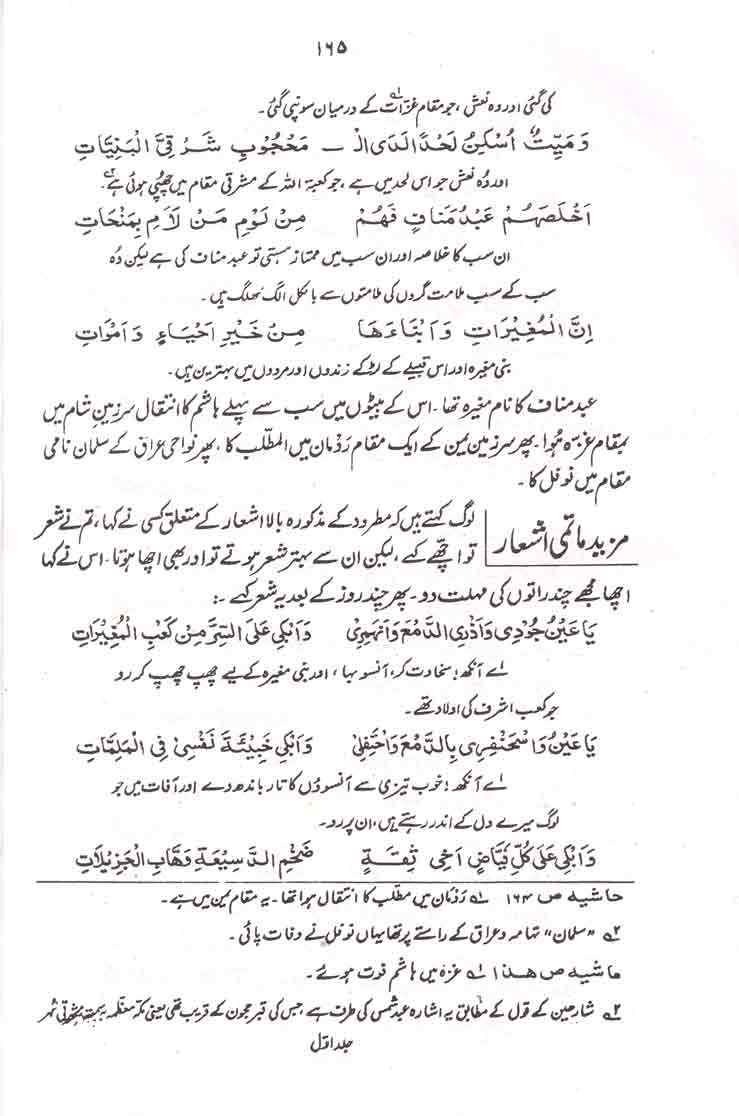 ۱۶۵
کی گئی اور وہ نعش، جو مقام غزات۱؎ کے درمیان سونپی گئی۔
وَ مَیِّتٌ اُسْکِنُ لَحْدًا لَدَی الْ ـــ مَحْجُوْبِ شَرْقِیَّ الْبَنِیَّاتِ
اور وُہ نعش جو اس لحد میں ہے، جو کعبۃ اللہ کے مشرقی مقام میں چھپی ہوئی ہے۲؎۔
اَخْلَصَهُمْ عَبْدُ مَنَافٍ فَهُمْ مِنْ لَوْمِ مَنْ لَامَ بِمَنْجَاتِ
ان سب کا خلاصہ اور ان سب میں ممتاز ہستی تو عبد مناف کی ہے لیکن وُہ
سب کے سب ملامت گروں کی ملامتوں سے بالکل الگ تھلگ ہیں۔
اِنَّ الْمُغِیْرَاتِ وَ اَبْنَاءَهَا مِنْ خَیْرِ اَحْیَاءٍ وَ اَمْوَاتِ
بنی مغیرہ اور اس قبیلے کے لڑکے زندوں اور مردوں میں بہترین ہیں۔
عبد مناف کا نام مغیرہ تھا۔ اس کے بیٹوں میں سب سے پہلے ہاشم کا انتقال سرزمینِ شام میں
بمقام غزہ ہُوا۔ پھر سرزمین یمن کے ایک مقام رَدْمان میں المطلب کا، پھر نواحی عراق کے سلمان نامی
مقام میں نوفل کا۔
مزید ماتمی اشعار
لوگ کہتے ہیں کہ مطرود کے مذکورہ بالا اشعار کے متعلق کسی نے کہا، تم نے شعر
تو اچھے کہے، لیکن ان سے بہتر شعر ہوتے تو اور بھی اچھا ہوتا۔ اس نے کہا
اچھا مجھے چند راتوں کی مہلت دو۔ پھر چند روز کے بعد یہ شعر کہے:
یَا عَیْنُ جُوْدِیْ وَ اَذْرِی الدَّمْعَ وَ انْهَمِرِیْ وَ ابْکِیْ عَلَی السِّرِّ مِنْ کَعْبِ الْمُغِیْرَاتِ
اے آنکھ! سخاوت کر، آنسو بہا، اور بنی مغیرہ کے لیے چھپ چھپ کر رو
جو کعب اشرف کی اولاد تھے۔
یَا عَیْنُ وَ اسْحَنْفِرِیْ بِالدَّمْعِ وَ احْتَفِلِیْ وَ ابْکِیْ خَبِیْئَةَ نَفْسِیْ فِی الْمُلِمَّاتِ
اے آنکھ! خوب تیزی سے آنسوؤں کا تار باندھ دے اور آفات میں جو
لوگ میرے دل کے اندر رہتے ہیں، ان پر رو۔
وَ ابْکِیْ عَلٰی کُلِّ فَیَّاضٍ اَخِیْ ثِقَةٍ ضَخْمِ الدَّسِیْعَةِ وَهَّابِ الْجَزِیْلَاتِ
حاشیہ ص ۱۶۴ ۱؎ رَدْمَان میں مطلب کا انتقال ہوا تھا۔ یہ مقام یمن میں ہے۔
۲؎ "سلمان" تہامہ و عراق کے راستے پر تھا یہاں نوفل نے وفات پائی۔
حاشیہ ص ھذا ۱؎ غزہ میں ہاشم فوت ہوئے۔
۲؎ شارحین کے قول کے مطابق یہ اشارہ عبد شمس کی طرف ہے، جس کی قبر حجون کے قریب تھی یعنی مکہ معظمہ
جلد اوّل